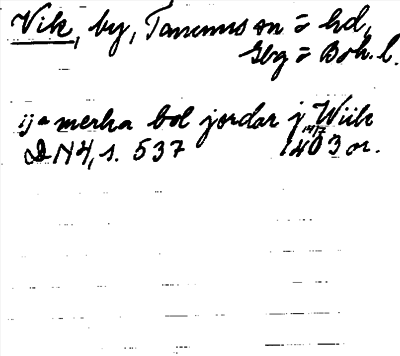 Vik, by, Tanums sn = hd,
Gbg = Boh. l.
ij a merka bol jordar j Wiik
14/7
DN 4, s. 537 1403 or.